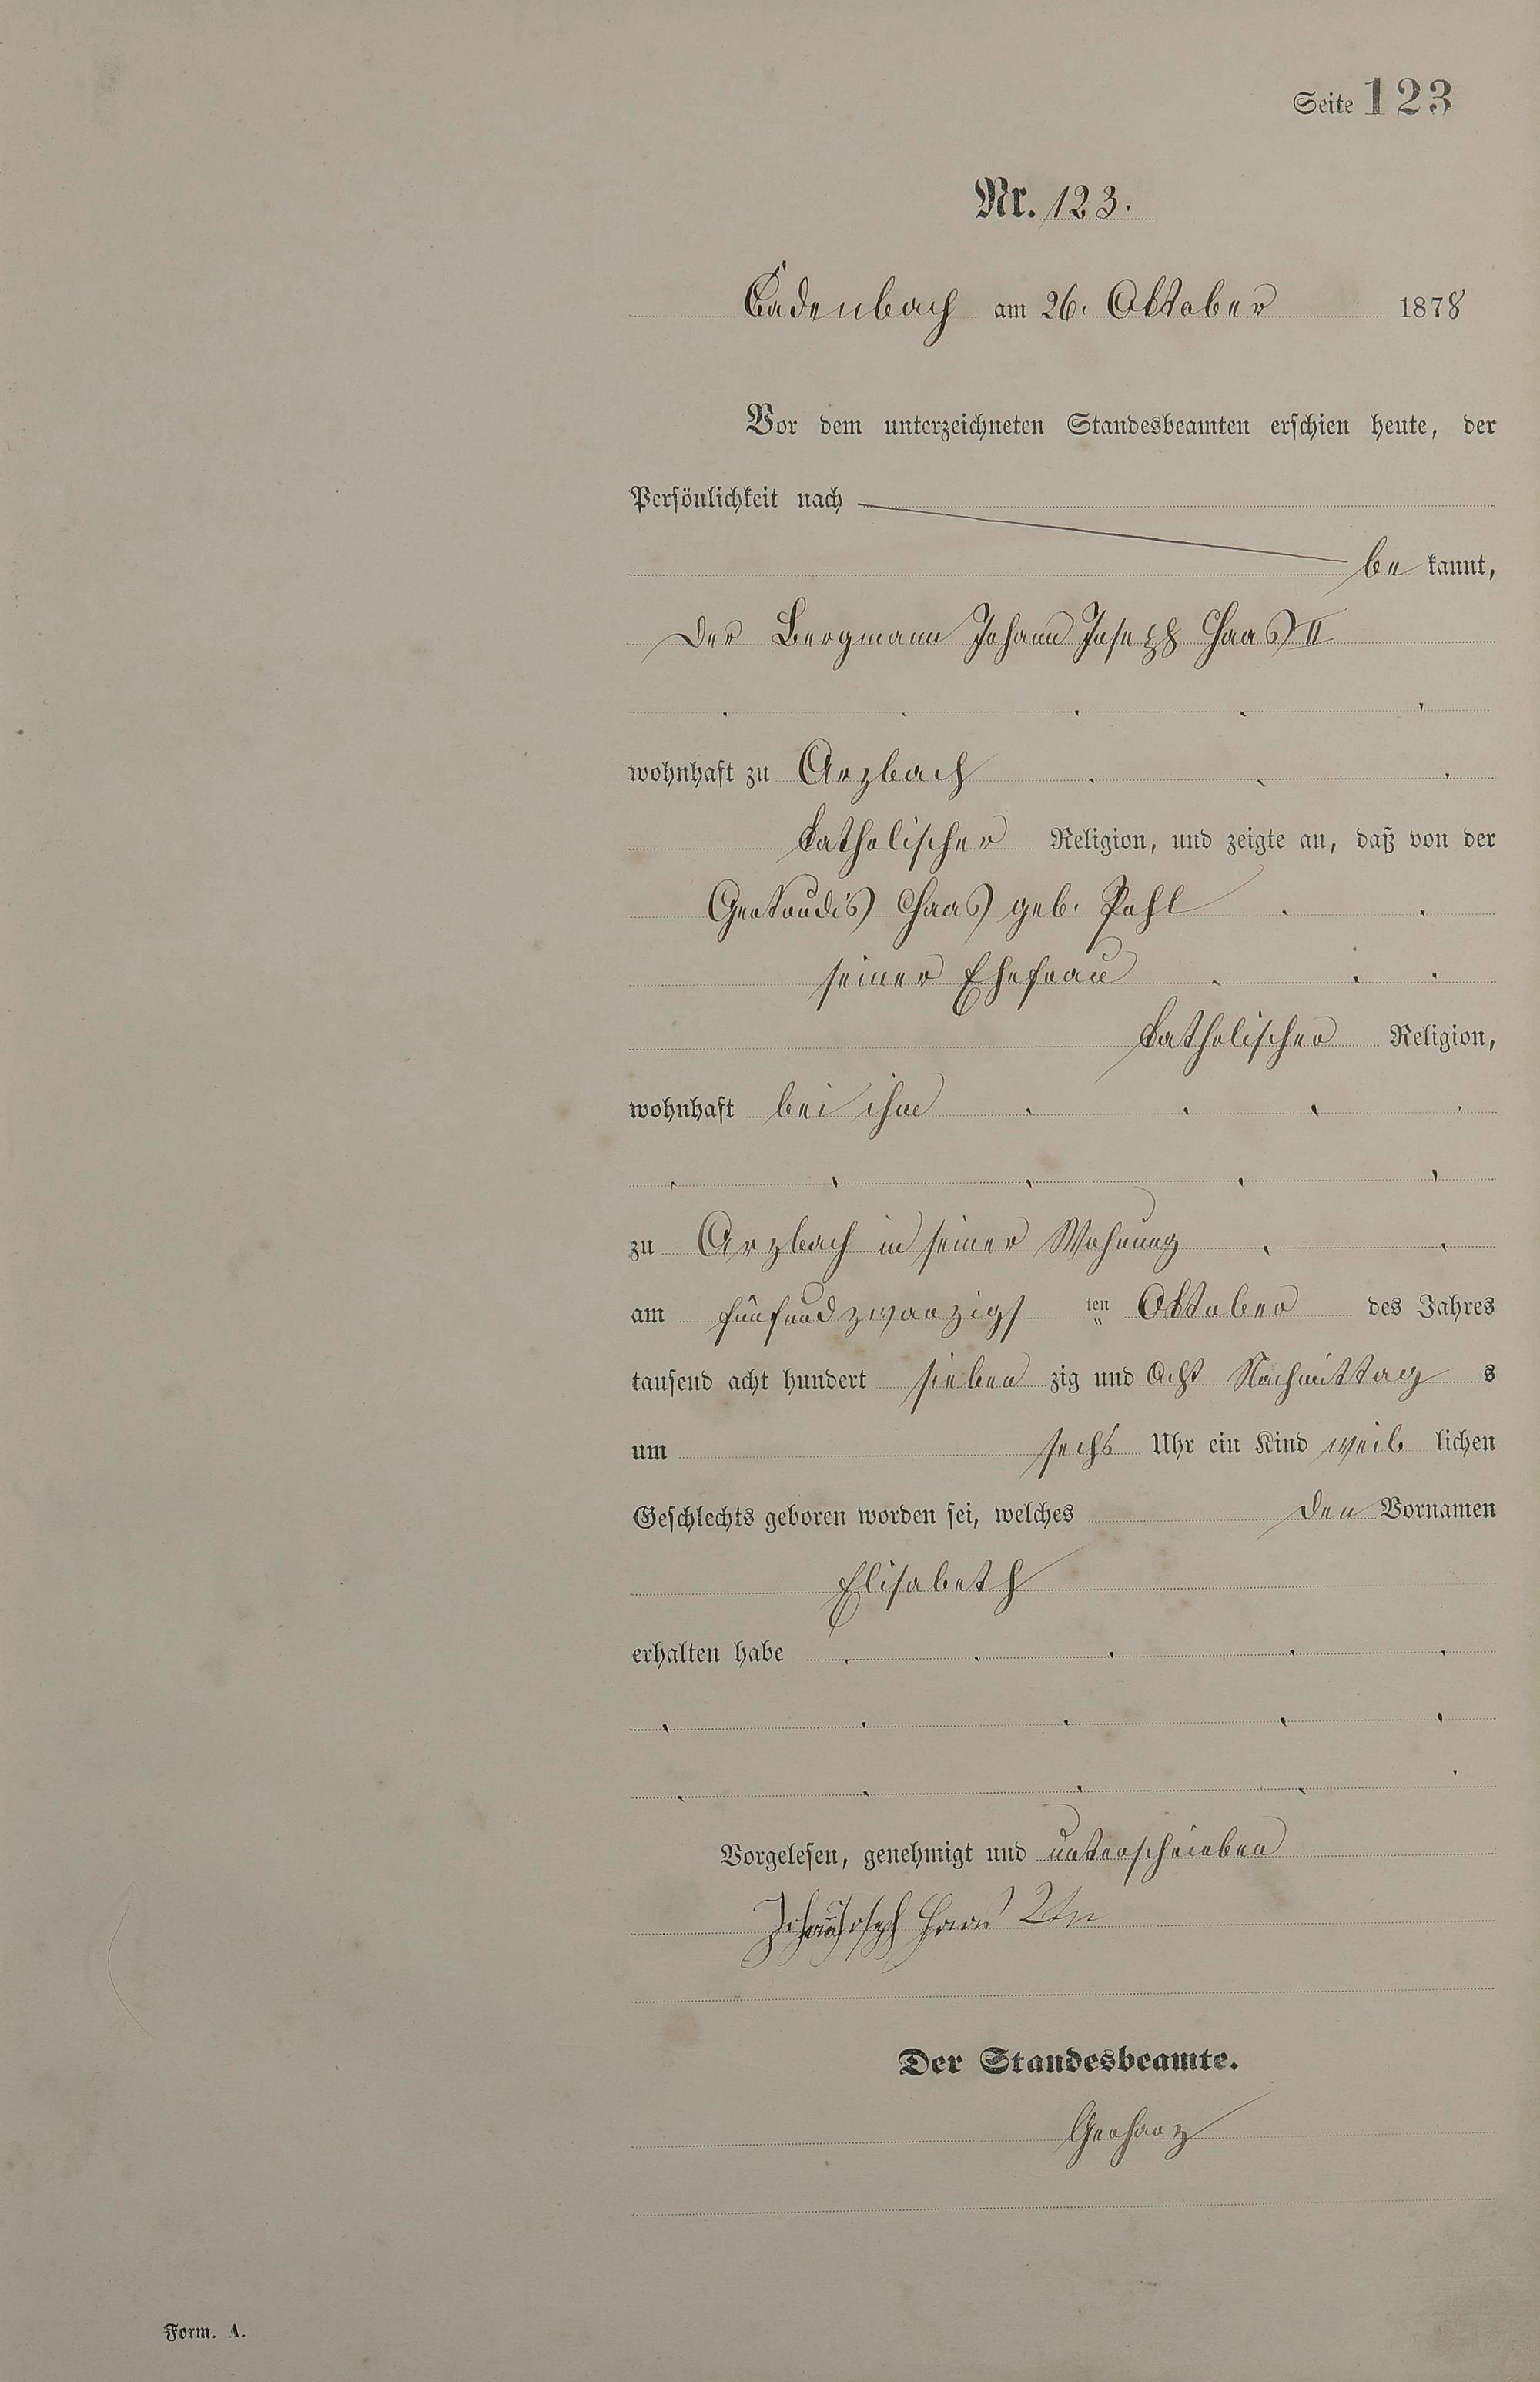 Seite 123
Nr. 123.
Cadenbach am 26. Oktober 1878
Vor dem unterzeichneten Standesbeamten erschien heute, der
Persönlichkeit nach
be kannt,
der Bergmann Johann Joseph Haas II
wohnhaft zu Arzbach
katholischer Religion, und zeigte an, daß von der
Gertraudis Haas geb. Pohl
seiner Ehefrau
katholischer Religion,
wohnhaft bei ihm
zu Arzbach in seiner Wohnung
am fünfundzwanzigs ten Oktober des Jahres
tausend acht hundert sieben zig und acht Nachmittag s
um sechs Uhr ein Kind weib lichen
Geschlechts geboren worden sei, welches den Vornamen
Elisabeth
erhalten habe
Vorgelesen, genehmigt und unterschrieben
Johann Joseph Haas 2ter
Der Standesbeamte.
Gerharz
Form. A.